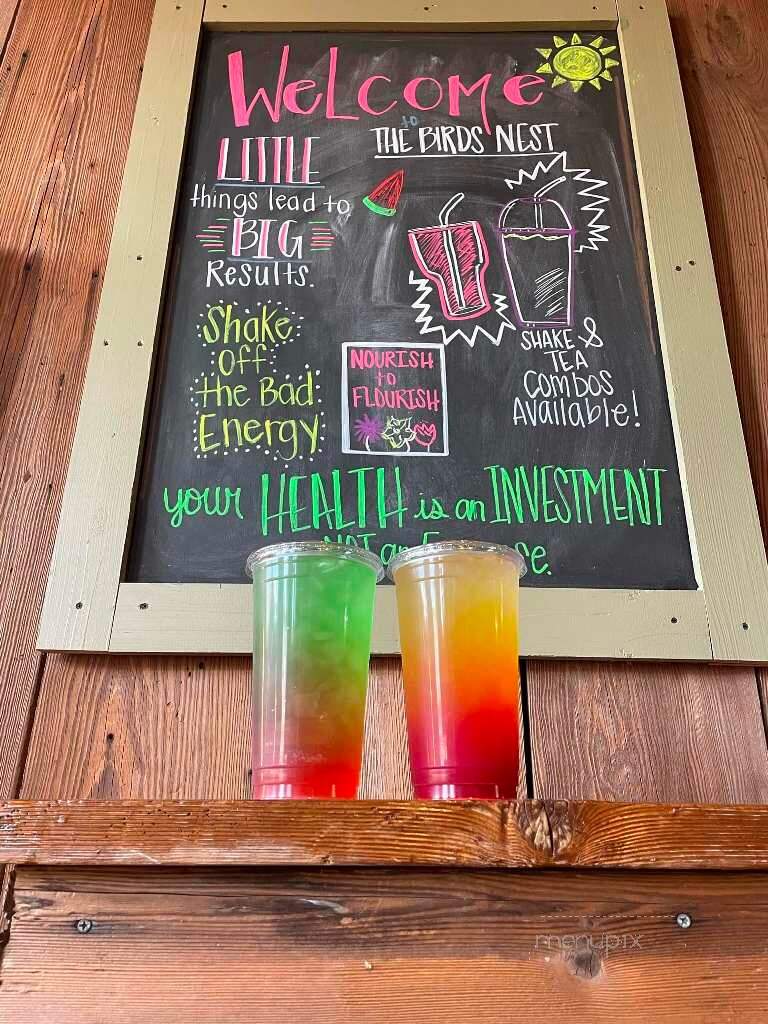 WeLcome
to
THE BIRDS NEST
LITTLE
things lead to
BIG
Results.
Shake
off
the Bad
Energy
NOURISH
to
FLOURISH
SHAKE &
TEA
COMBOS
Available!
your HEALTH is an INVESTMENT
NOT an
menupix